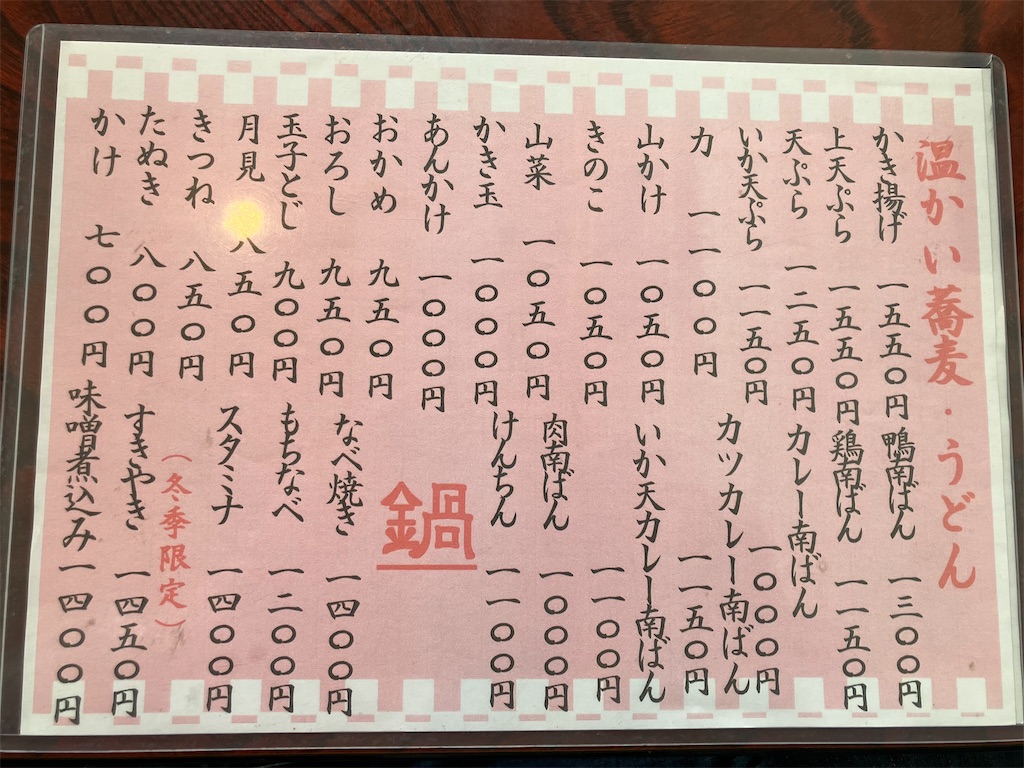 温かい蕎麦・うどん
かき揚げ 一五五〇円
上天ぷら 一五五〇円
天ぷら 一二五〇円
いか天ぷら 一一五〇円
力 一一〇〇円
山かけ 一〇五〇円
きのこ 一〇五〇円
山菜 一〇五〇円
かき玉 一〇〇〇円
あんかけ 一〇〇〇円
おかめ 九五〇円
おろし 九五〇円
玉子とじ 九〇〇円
月見 八五〇円
きつね 八五〇円
たぬき 八〇〇円
かけ 七〇〇円
鴨南ばん 一三〇〇円
鶏南ばん 一一五〇円
カレー南ばん 一〇〇〇円
カツカレー南ばん 一一五〇円
いか天カレー南ばん 一一〇〇円
肉南ばん 一〇〇〇円
けんちん 一一〇〇円
鍋
なべ焼き 一四〇〇円
もちなべ 一二〇〇円
スタミナ 一四〇〇円
(冬季限定)
すきやき 一四五〇円
味噌煮込み 一四〇〇円